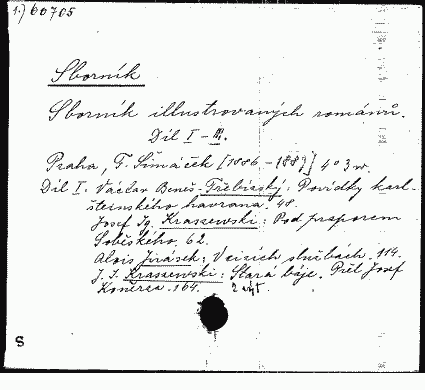 1.) 60705
Sborník
Sborník illustrovaných románů.
Díl I – III.
Praha, F. Šimáček [1886 – 1889] 4° 3 w.
Díl I. Václav Beneš - Třebízský: Povídky karl-
štejnského havrana. 48.
Josef Ig. Kraszewski: Pod praporem
Soběského. 62.
Alois Jirásek: V cizích službách. 114.
J. I. Kraszewski: Stará báje. Přel. Josef
Koněrza. 164. 2 výt.
S